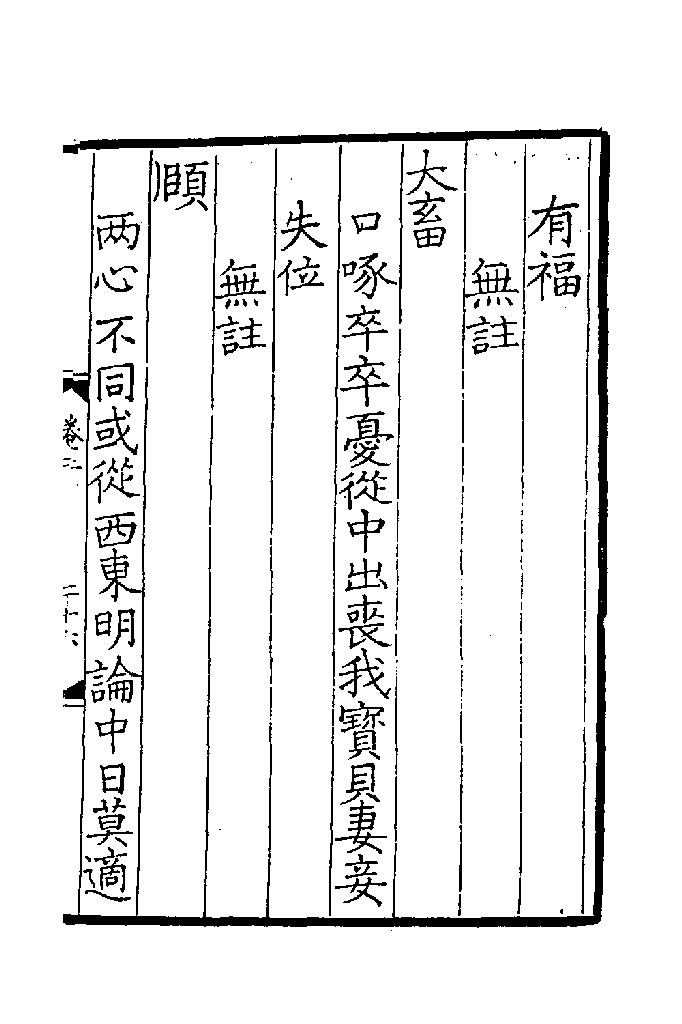 有福
無註
大畜
口啄卒卒憂從中出喪我寶貝妻妾
失位
無註
頤
两心不同或從西東明論中日莫適
卷二
二十六